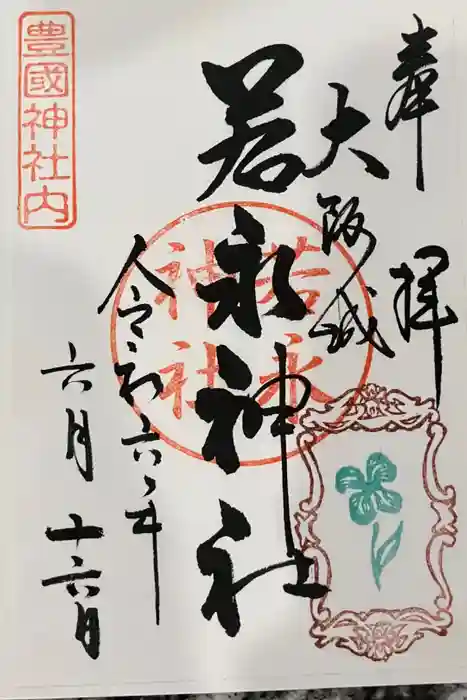 奉拝
大阪城
若永神社
若永
神社
令和六年
六月十六日
豊國神社内